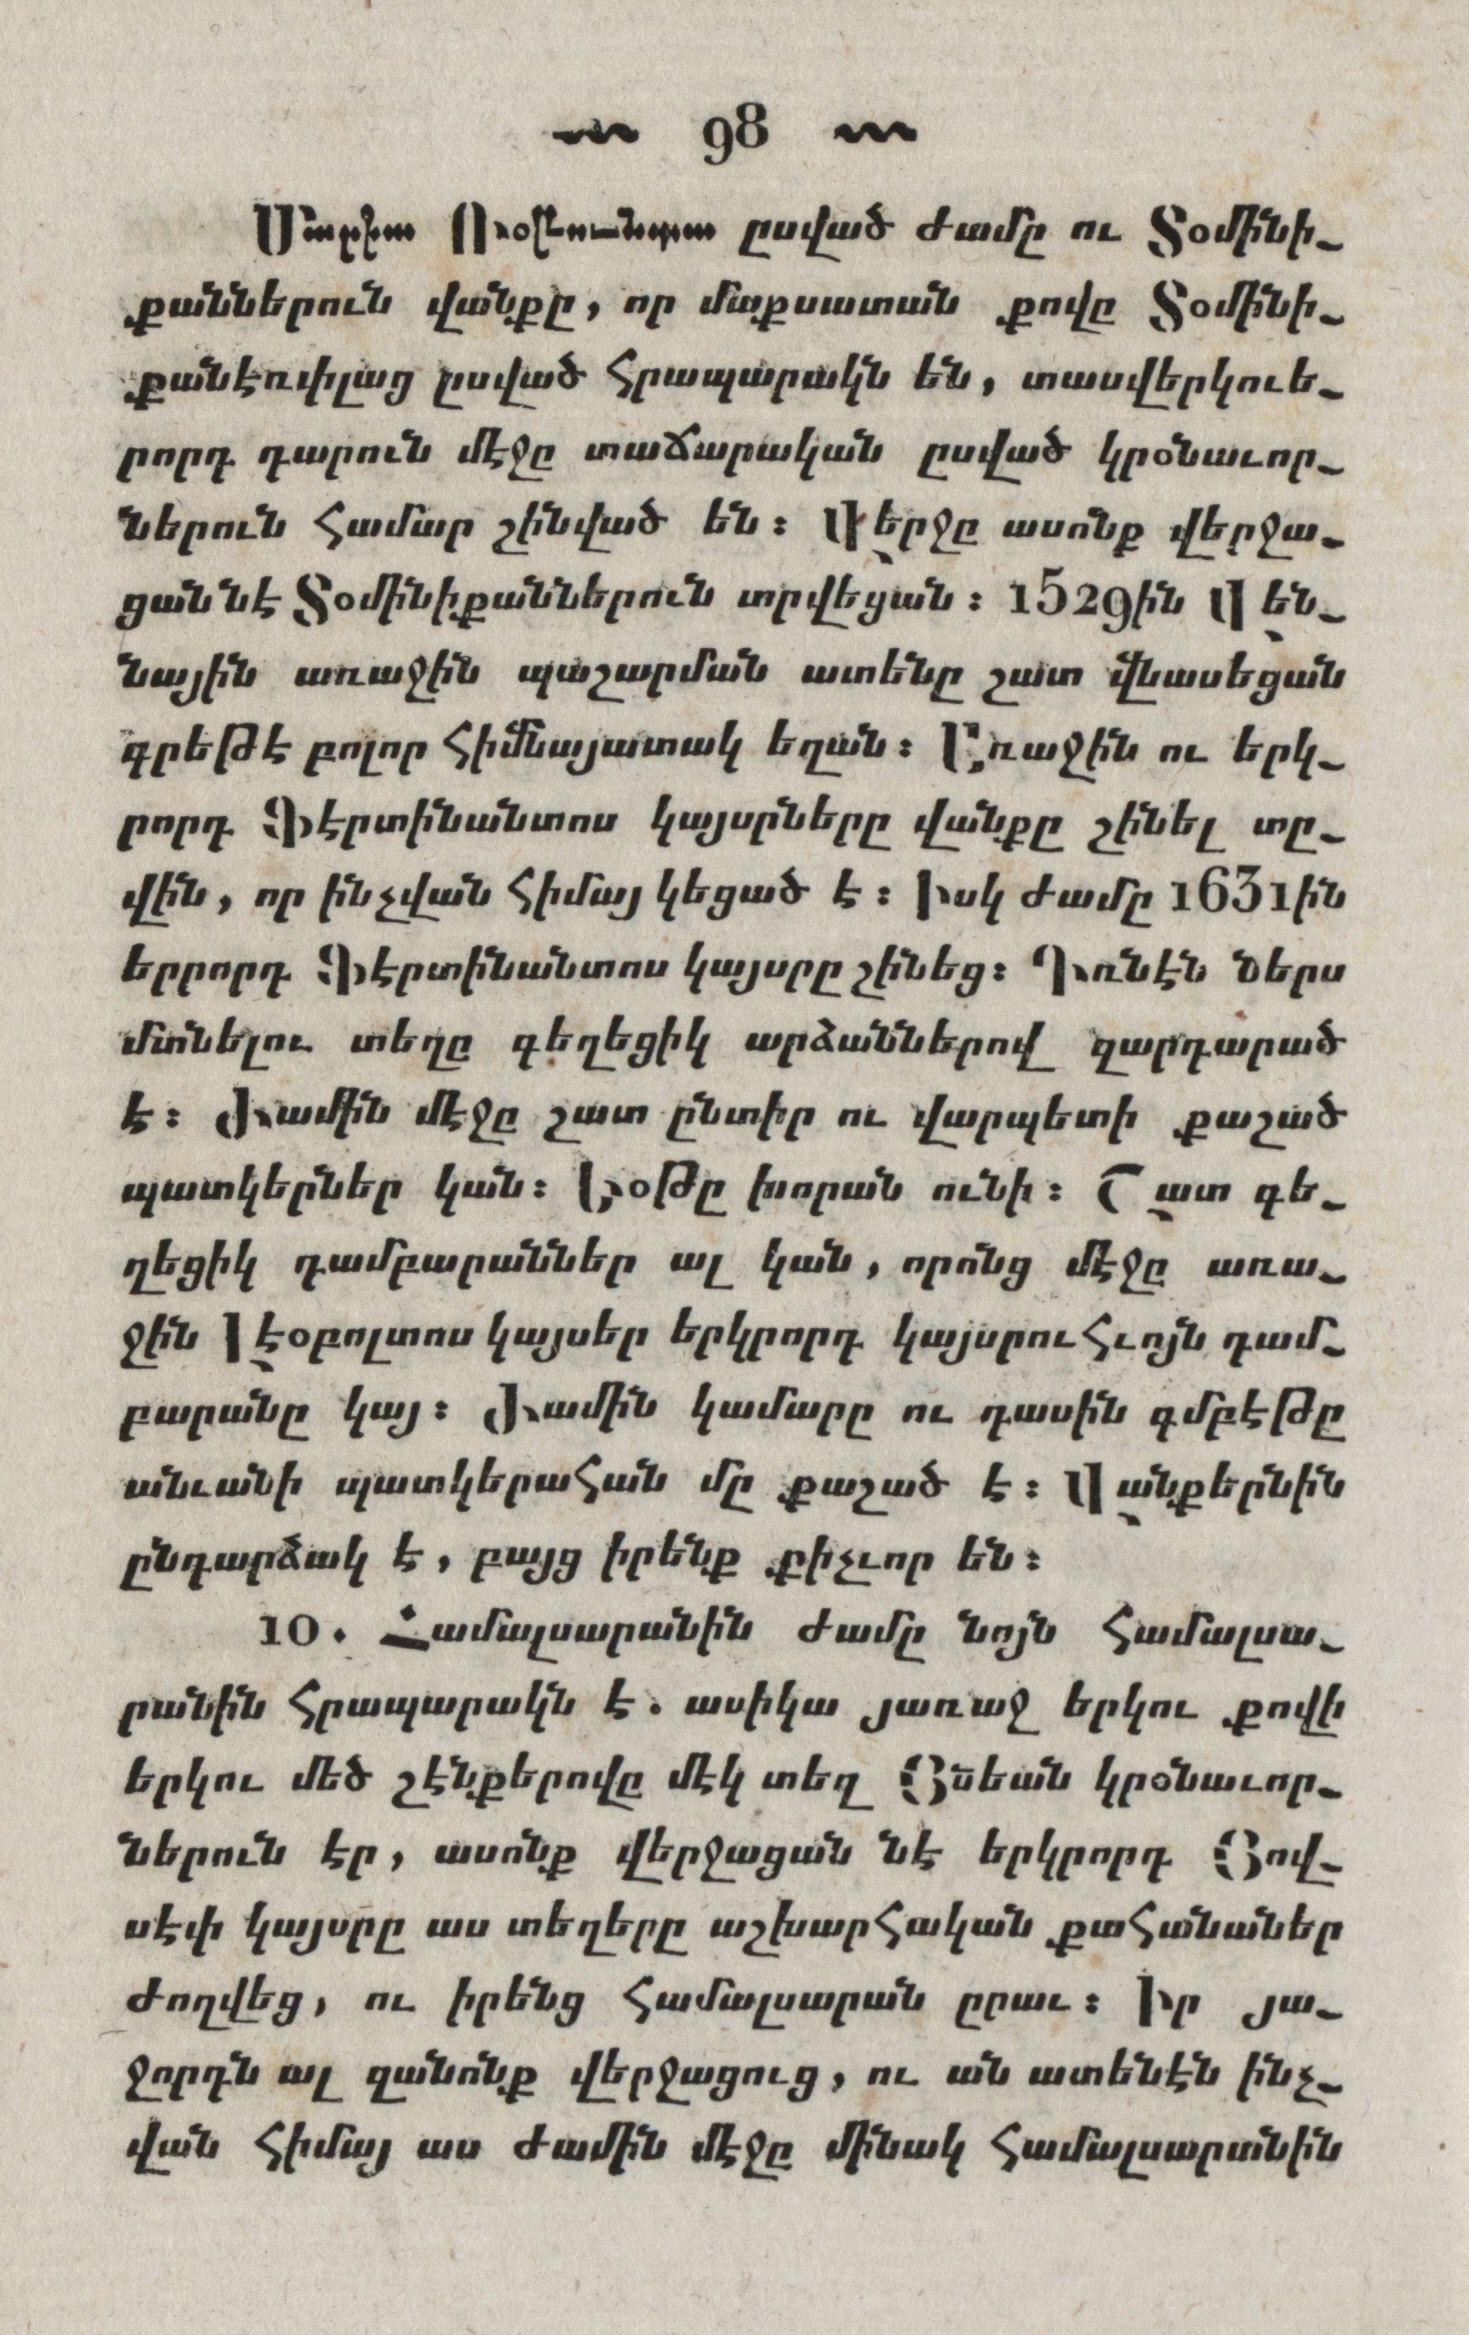 98
Մարիա Ռօթունտա ըսված ժամը ու Տօմինի֊
քաններուն վանքը, որ մաքսատան քովը Տօմինի֊
քանէռփլաց ըսված հրապարակն են, տասվերկուե֊
րորդ դարուն մէջը տաճարական ըսված կրօնաւոր֊
ներուն համար շինված են։ Վերջը ասոնք վերջա֊
ցան նէ Տօմինիքաններուն տրվեցան։ 1529ին Վեն֊
նային առաջին պաշարման ատենը շատ վնասեցան
գրեթէ բոլոր հիմնայատակ եղան։ Առաջին ու երկ֊
րորդ Ֆէրտինանտոս կայսրները վանքը շինել տը֊
վին, որ ինչվան հիմայ կեցած է։ Իսկ ժամը 1631ին
երրորդ Ֆէրտինանտոս կայսրը շինեց։ Դռնէն ներս
մտնելու տեղը գեղեցիկ արձաններով զարդարած
է։ Ժամին մէջը շատ ընտիր ու վարպետի քաշած
պատկերներ կան։ Եօթը խորան ունի։ Շատ գե֊
ղեցիկ դամբարաններ ալ կան, որոնց մէջը առա֊
ջին Լէօբոլտոս կայսեր երկրորդ կայսրուհւոյն դամ֊
բարանը կայ։ Ժամին կամարը ու դասին գմբէթը
անւանի պատկերահան մը քաշած է։ Վանքերնին
ընդարձակ է, բայց իրենք քիչւոր են։
10. Համալսարանին ժամը նոյն համալսա֊
րանին հրապարակն է. ասիկա յառաջ երկու քովի
երկու մեծ շէնքերովը մէկ տեղ Յսեան կրօնաւոր֊
ներուն էր, ասոնք վերջացան նէ երկրորդ Յով֊
սէփ կայսրը աս տեղերը աշխարհական քահանաներ
ժողվեց, ու իրենց համալսարան ըրաւ։ Իր յա֊
ջորդն ալ զանոնք վերջացուց, ու ան ատենէն ինչ֊
վան հիմայ աս ժամին մէջը մինակ համալսարանին